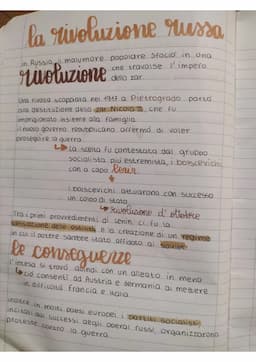 la rivoluzione russa
in Russia il malumore popolare sfociò in una
rivoluzione che travolse l'impero
dello zar.
Una rivolta scoppiata nel 1917 a Pietrogrado portò
alla destituzione dello zar Nicola II che fu
imprigionato insieme alla famiglia.
il nuovo governo repubblicano affermò di voler
proseguire la guerra.
la scelta fu contestata dal gruppo
socialista più estremista, i bolscevichi
con a capo lenin
i bolscevichi attuarono con successo
un colpo di stato
rivoluzione d'ottobre
Tra i primi provvedimenti di lenin ci fu la
cessazione delle ostilità e la creazione di un regime
in cui il potere sarebbe stato affidato ai soviet.
le conseguenze
l'intesa si trovò quindi con un alleato in meno
ciò consentì ad Austria e Germania di mettere
in difficoltà Francia e Italia
inoltre in molti paesi europei i partiti socialisti,
incitati dai successi degli operai russi, organizzarono
proteste contro la guerra.